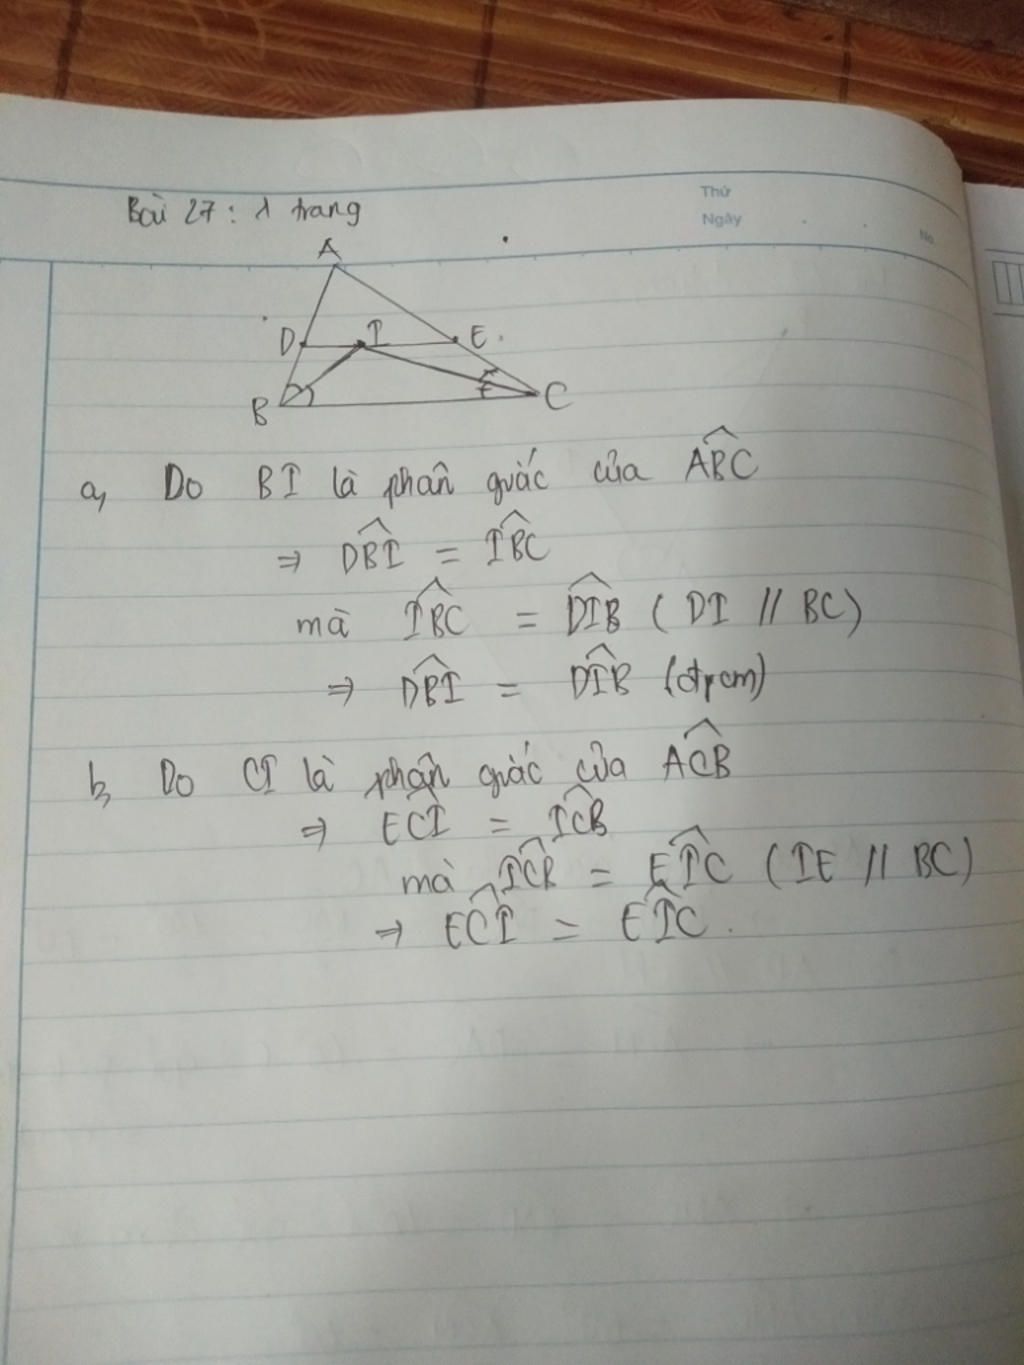 Thứ
Bài 27: 1 trang
Ngày
No.
A
D I E
B C
a, Do BI là phân giác của ABC
⇒ DBI = IBC
mà IBC = DIB ( DI // BC )
⇒ DBI = DIB (đpcm)
b, Do CI là phân giác của ACB
⇒ ECI = ICB
mà ICB = EIC ( IE // BC )
⇒ ECI = EIC .